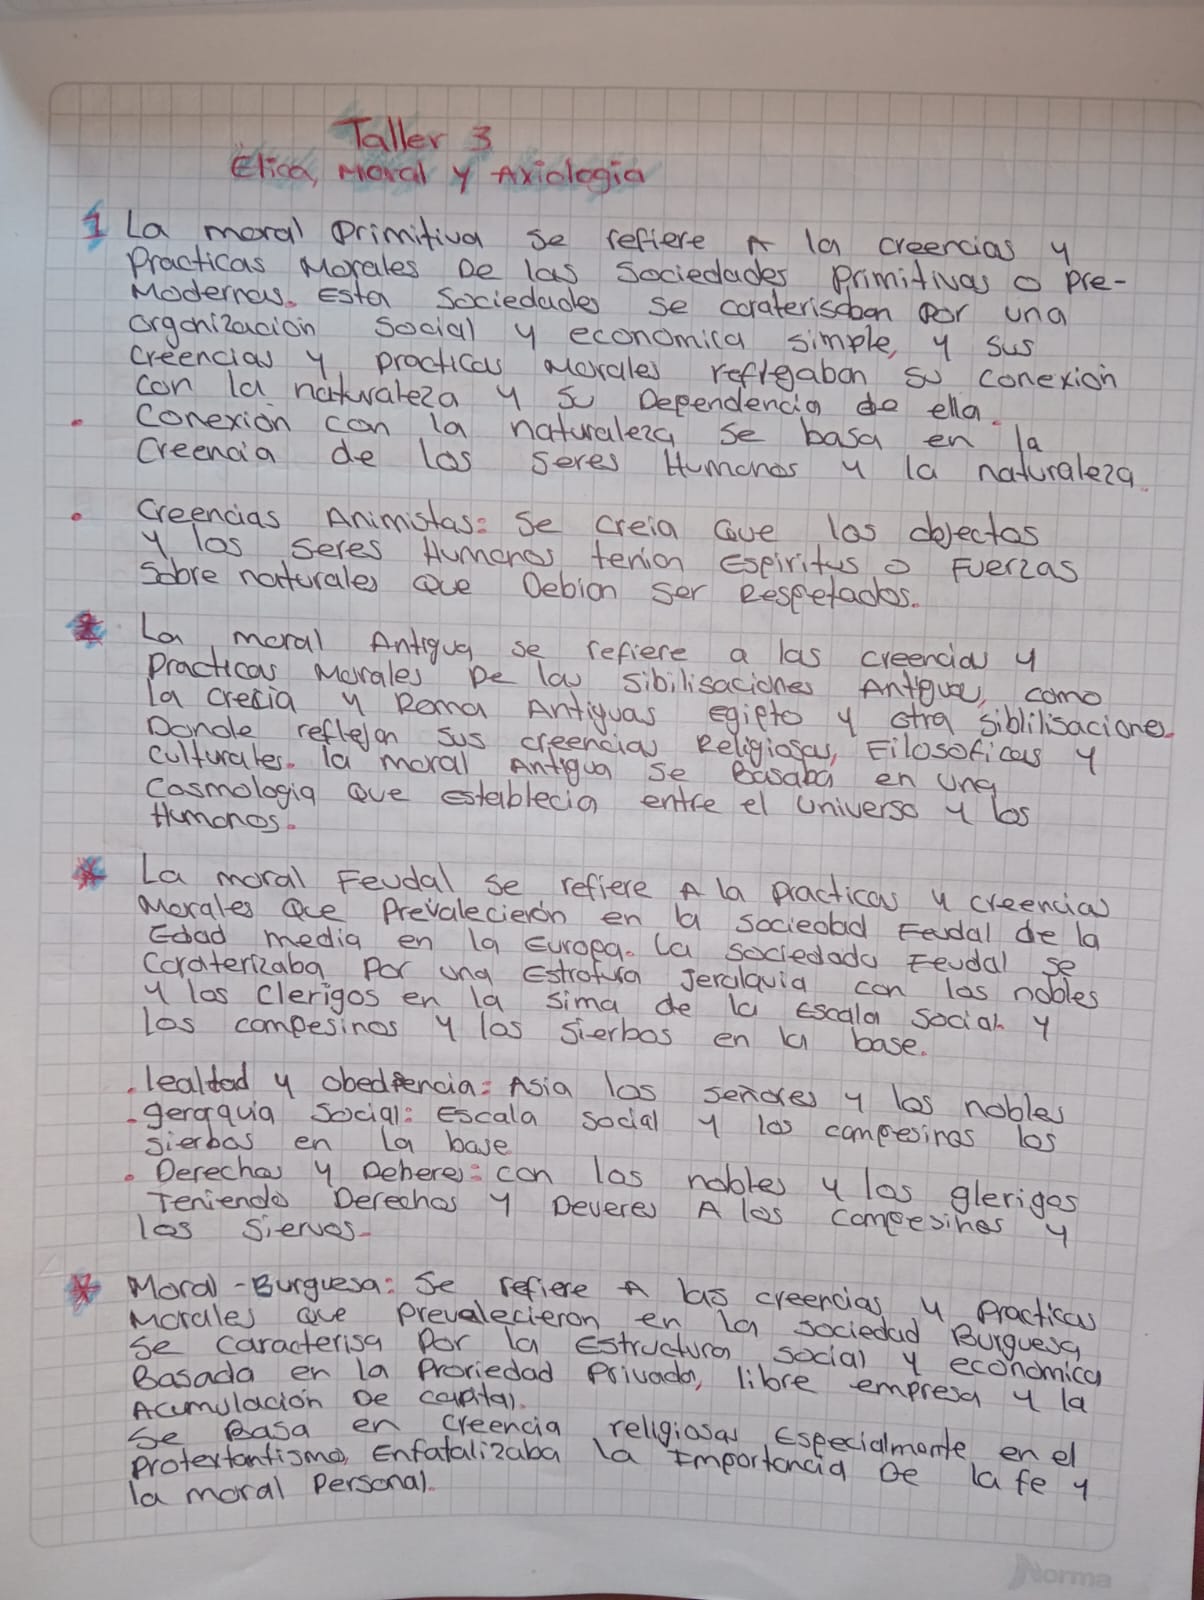 Taller 3
Etica, Moral y Axiologia
1 La moral Primitiva se refiere A la creencias y
Practicas Morales De las Sociedades Primitivas o Pre-
Modernas. Esta Sociedades se caraterisaban Por una
organización Social y economica simple, y sus
creencias y practicas Morales reflegaban su conexión
con la naturaleza y su Dependencia de ella.
. Conexión con la naturaleza se basa en la
Creencia de los seres Humanos y la naturaleza.
. Creencias Animistas: Se creia Que los objectos
y los seres Humanos tenian Espiritus o Fuerzas
Sobre naturales Que Debian Ser Respetados.
* La moral Antigua se refiere a las creencias y
Practicas Morales De las sibilisaciones Antigua, como
la crecia y Roma Antiguas egipto y otra siblilisaciones.
Donde reflejan sus creencias Religiosas, Filosoficas y
Culturales. la moral Antigua se Basaba en una
Cosmologia Que establecia entre el Universo y los
Humanos.
* La moral Feudal se refiere A la practicas y creencias
Morales Que Prevalecierón en la Sociedad Feudal de la
Edad media en la Europa. La sociedada Feudal se
Caraterizaba Por una Estrotura Jeralquia con los nobles
y los clerigos en la sima de la Escala social y
los campesinos y los sierbos en la base.
. lealtad y obediencia: Asia los señores y los nobles
. gerarquia Social: Escala Social y los campesinos los
sierbos en la base
. Derechos y Deberes: con los nobles y los glerigos
Teniendo Derechos y Deveres A los campesinos y
los Siervos.
* Moral - Burguesa: Se refiere A las creencias y Practicas
Morales Que Prevalecieron en la sociedad Burguesa
Se caracterisa Por la Estructura social y economica
Basada en la Proriedad Privada, libre empresa y la
Acumulación De capital.
Se Basa en creencia religiosas Especialmente en el
Protestantismo, Enfatalizaba la Importancia De la fe y
la moral Personal.
Norma